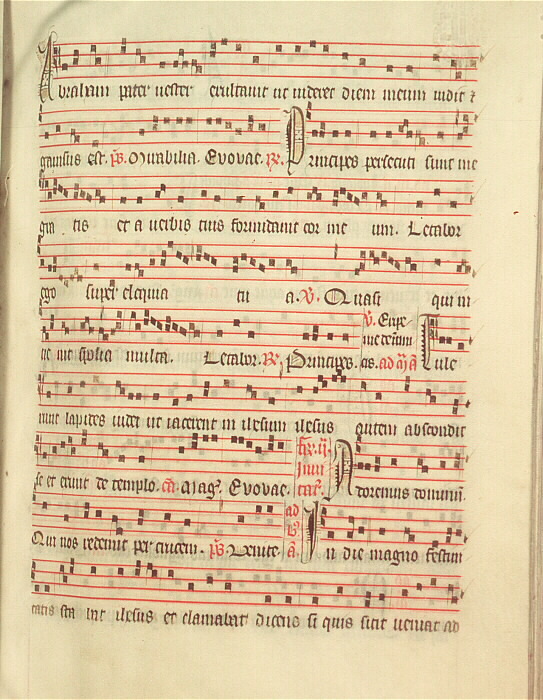 Abraham pater vester exultavit ut videret diem meum vidit &
gavisus est. ps. Mirabilia. Evovae. R. Principes persecuti sunt me
gra tis et a verbis tuis formidavit cor me um. Letabor
ego super eloquia tu a. V. Quasi qui in
ve nit spolia multa. Letabor. R. Principes. V. Eripe me de inim cis. ad m a Tule
runt lapides iudei ut iacerent in ihesum ihesus autem abscondit
se et exivit de templo. Mag. Evovae. fer. ii. invi tat. Adoremus dominum.
Qui nos redemit per crucem. ps. Venite. ad b. a In die magno festivi
tatis sta bat ihesus et clamabat dicens si quis sitit veniat ad